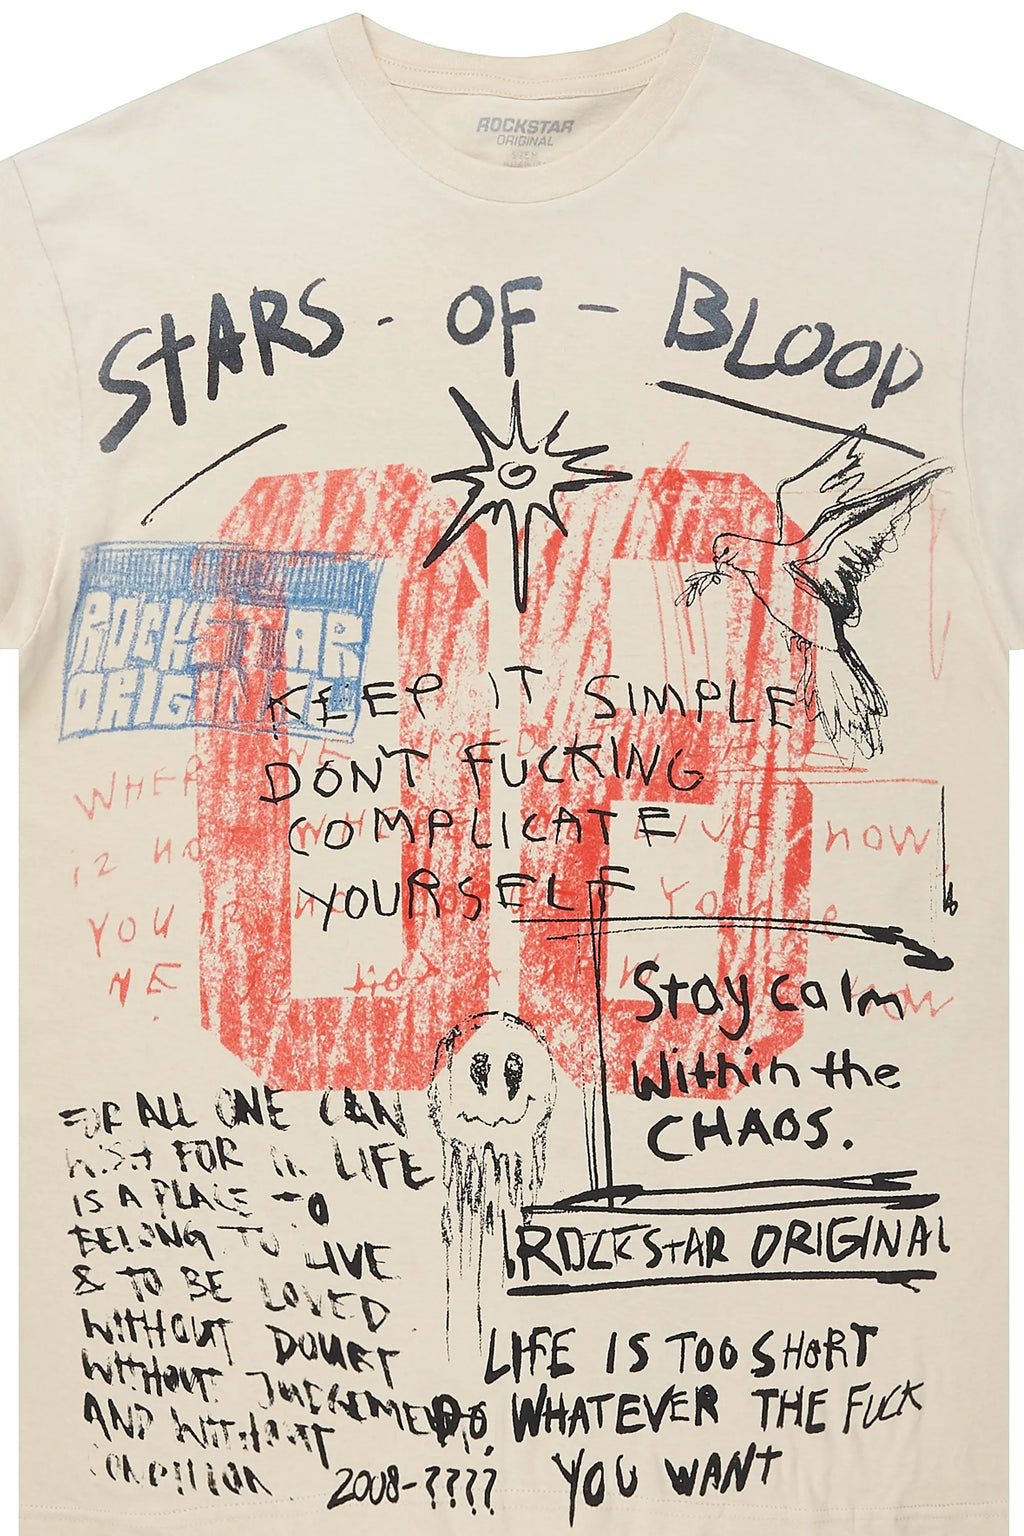 ROCKSTAR
ORIGINAL
STARS - OF - BLOOD
08
ROCKSTAR
ORIGINAL
KEEP IT SIMPLE
DONT FUCKING
COMPLICATE
YOURSELF
WHERE
YOU
NOW
YOU
ME
Stay calm
Within the
CHAOS.
ROCKSTAR ORIGINAL
FOR ALL ONE CAN
WISH FOR IN LIFE
IS A PLACE TO
BELONG TO LIVE
& TO BE LOVED
WITHOUT DOUBT
WITHOUT JUDGEMENT
AND WITHOUT
CONDITION
2008-????
LIFE IS TOO SHORT
DO WHATEVER THE FUCK
YOU WANT